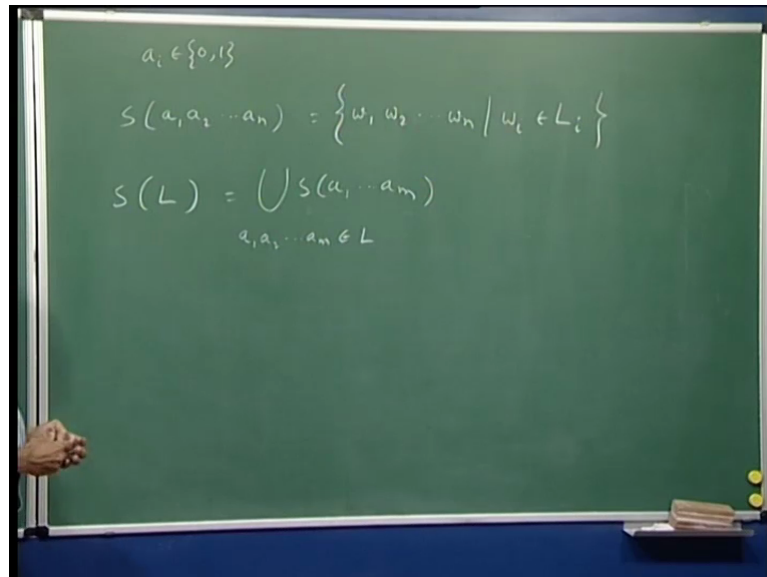 aᵢ ∈ {0,1}
S(a₁a₂ ⋯ aₙ) = {w₁ w₂ ⋯ wₙ | wᵢ ∈ Lᵢ}
S(L) = ⋃ S(a₁ ⋯ aₘ)
a₁a₂ ⋯ aₘ ∈ L